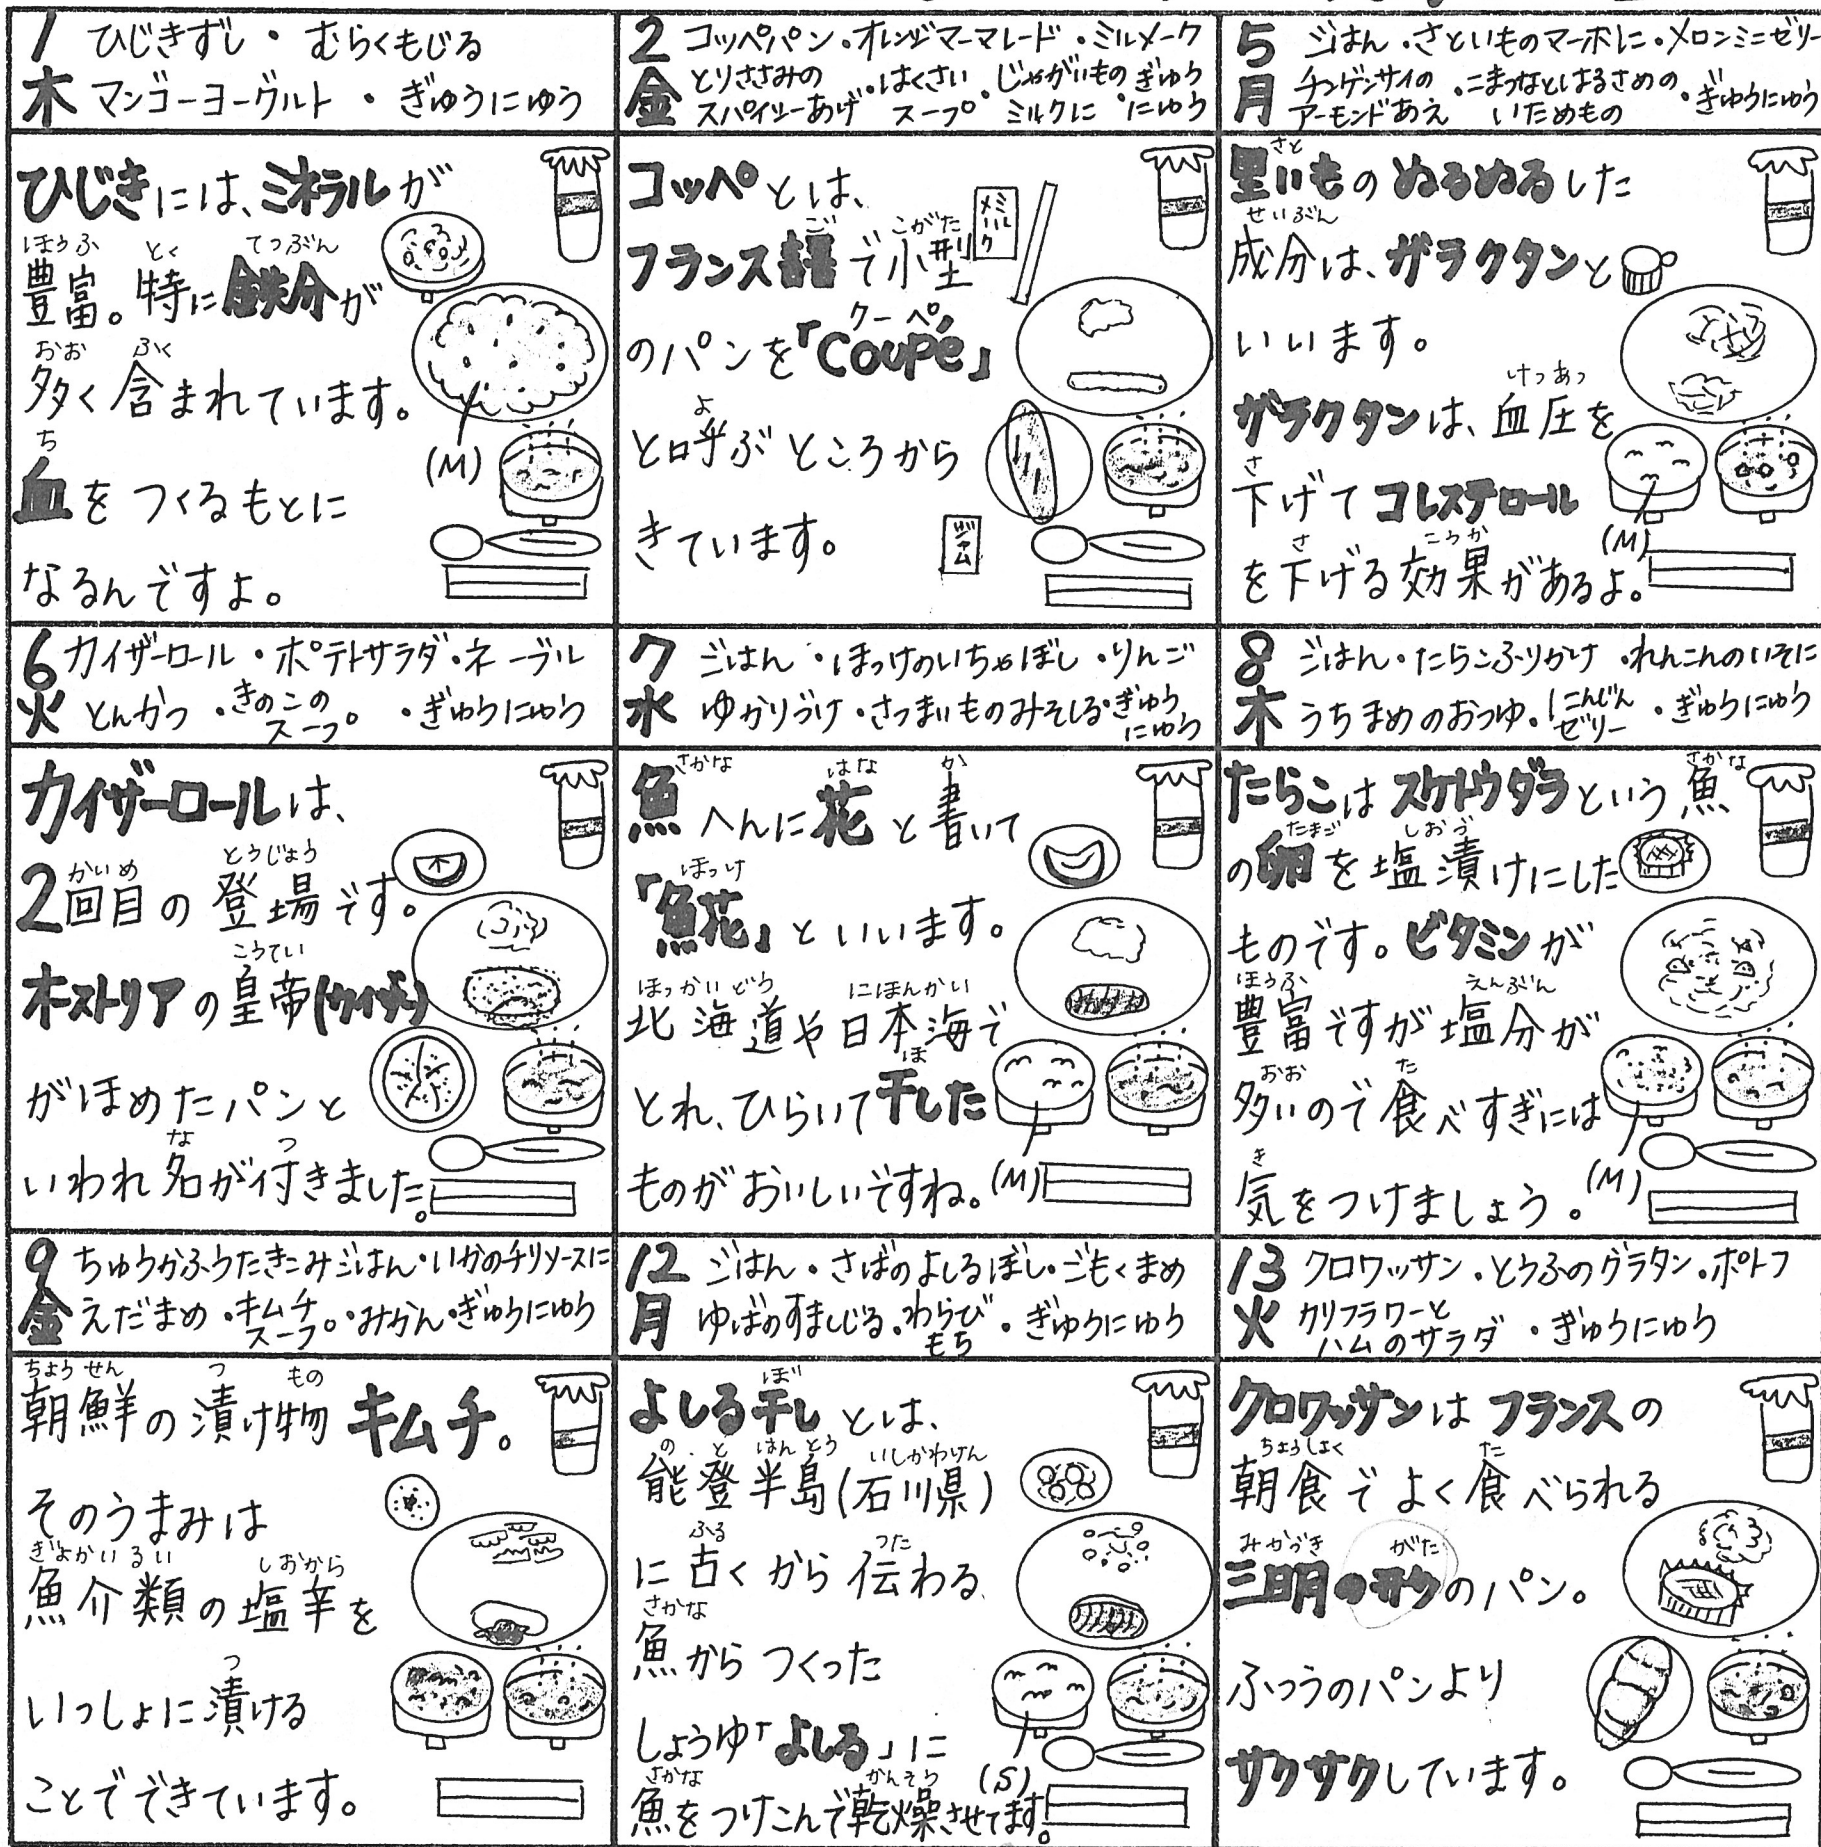 1 ひじきずし・むらくもじる
木 マンゴーヨーグルト・ぎゅうにゅう
ひじきには、ミネラルが
ほうふ とく てつぶん
豊富。特に鉄分が
おお ふく
多く含まれています。
ち
血をつくるもとに
なるんですよ。
(M)
2 コッペパン・オレンジマーマレード・ミルメーク
金 とりささみのスパイシーあげ・はくさいスープ・じゃがいものミルクに・ぎゅうにゅう
コッペとは、
ご こがた
フランス語で小型
クーペ
のパンを「Coupé」
よ
と呼ぶところから
きています。
ミルメーク
ジャム
5 ごはん・さといものマーボに・メロンミニゼリー
月 チンゲンサイのアーモンドあえ・こまつなとはるさめのいためもの・ぎゅうにゅう
さと
里いものぬるぬるした
せいぶん
成分は、ガラクタンと
いいます。
けつあつ
ガラクタンは、血圧を
さ
下げてコレステロール
さ こうか
を下げる効果があるよ。
(M)
6 カイザーロール・ポテトサラダ・ネーブル
火 とんかつ・きのこのスープ・ぎゅうにゅう
カイザーロールは、
かいめ とうじょう
2回目の登場です。
こうてい
オーストリアの皇帝(カイザー)
がほめたパンと
な つ
いわれ名が付きました。
7 ごはん・ほっけのいちやぼし・りんご
水 ゆかりづけ・さつまいものみそしる・ぎゅうにゅう
さかな はな か
魚へんに花と書いて
ほっけ
「𩸽」といいます。
ほっかいどう にほんかい
北海道や日本海で
ほ
とれ、ひらいて干した
ものがおいしいですね。
(M)
8 ごはん・たらこふりかけ・れんこんのいそに
木 うちまめのおつゆ・にんじんゼリー・ぎゅうにゅう
さかな
たらこはスケトウダラという魚
たまご しおづ
の卵を塩漬けにした
ものです。ビタミンが
ほうふ えんぶん
豊富ですが塩分が
おお た
多いので食べすぎには
き
気をつけましょう。
(M)
9 ちゅうかふうたきこみごはん・いかのチリソースに
金 えだまめ・キムチスープ・みかん・ぎゅうにゅう
ちょうせん つ もの
朝鮮の漬け物キムチ。
そのうまみは
ぎょかいるい しおから
魚介類の塩辛を
つ
いっしょに漬ける
ことでできています。
12 ごはん・さばのよしるぼし・ごもくまめ
月 ゆばのすましじる・わらびもち・ぎゅうにゅう
ぼ
よしる干しとは、
のと はんとう いしかわけん
能登半島(石川県)
ふる つた
に古くから伝わる
さかな
魚からつくった
しょうゆ「よしる」に
さかな かんそう
魚をつけこんで乾燥させてます。
(S)
13 クロワッサン・とうふのグラタン・ポトフ
火 カリフラワーとハムのサラダ・ぎゅうにゅう
クロワッサンはフランスの
ちょうしょく た
朝食でよく食べられる
みかづき がた
三日月の形のパン。
ふつうのパンより
サクサクしています。